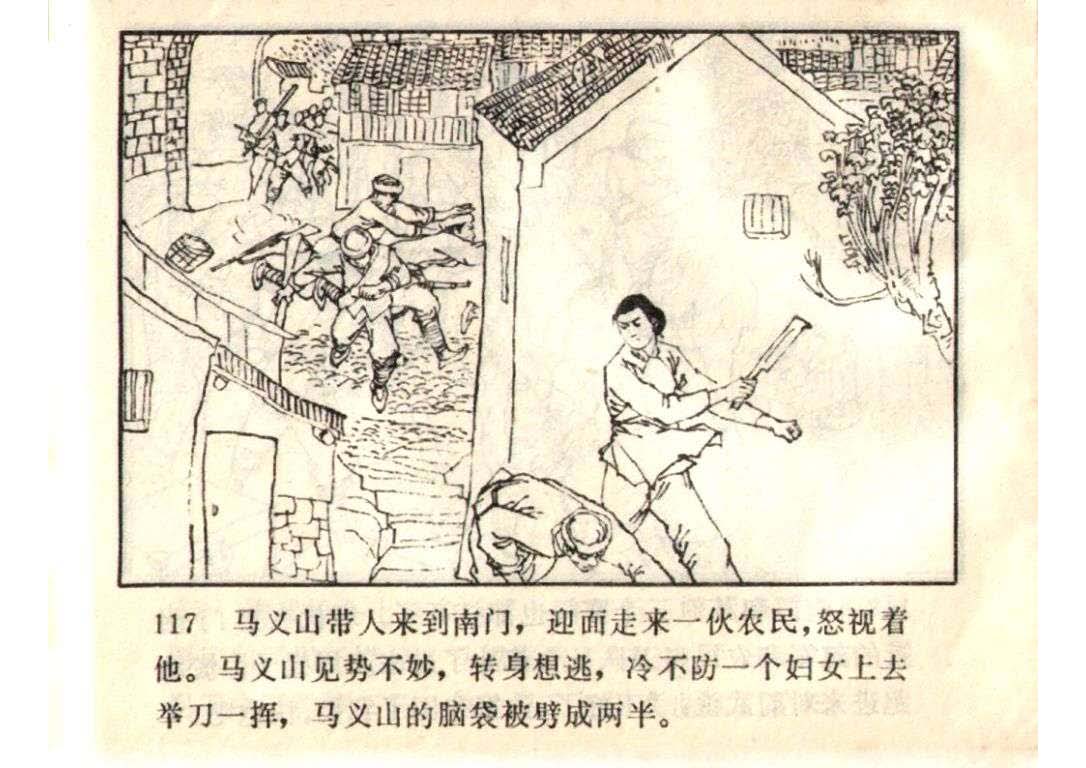 117 马义山带人来到南门，迎面走来一伙农民，怒视着
他。马义山见势不妙，转身想逃，冷不防一个妇女上去
举刀一挥，马义山的脑袋被劈成两半。